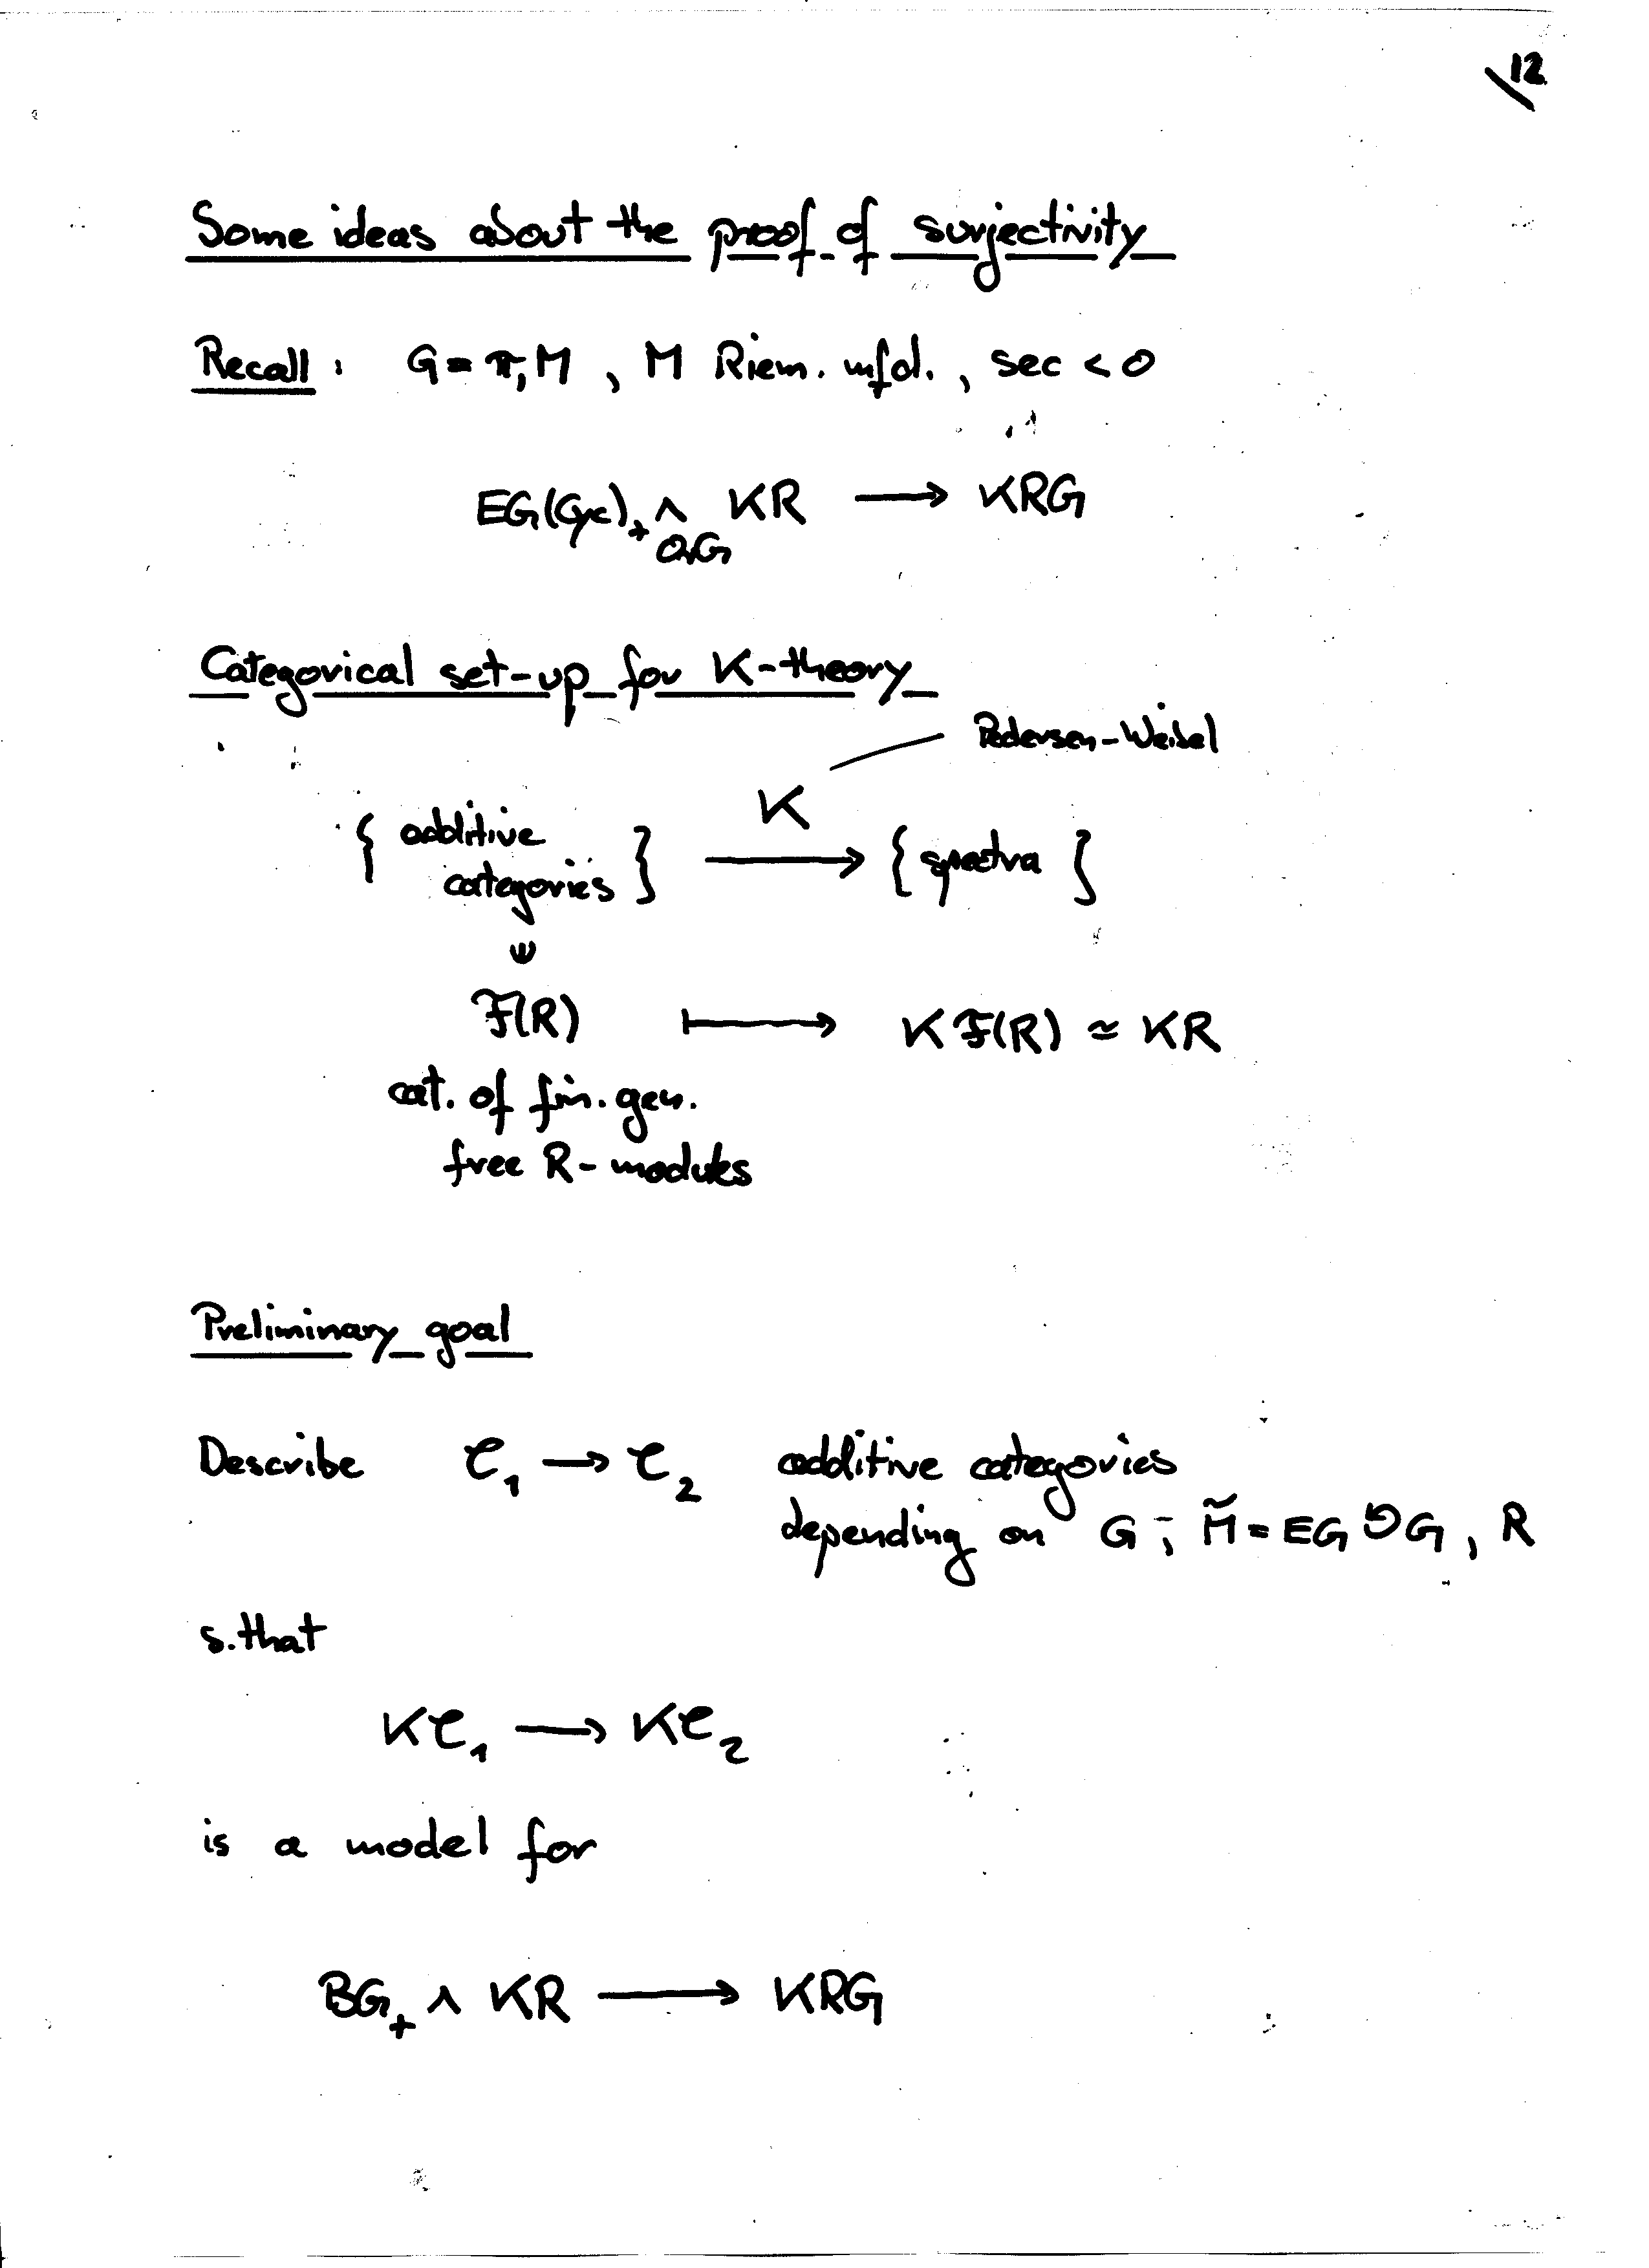 12
Some ideas about the proof of surjectivity
Recall : G = π₁M , M Riem. mfd. , sec < 0
EG(Cyc)₊ ∧ KR ⟶ KRG
OrG
Categorical set-up for K-theory
Pedersen-Weibel
K
{ additive categories } ⟶ { spectra }
∈
F(R) ⟼ K F(R) ≃ KR
cat. of fin. gen.
free R-modules
Preliminary goal
Describe 𝒞₁ → 𝒞₂ additive categories
depending on G ; M̃ = EG ↺ G , R
s.that
K𝒞₁ ⟶ K𝒞₂
is a model for
BG₊ ∧ KR ⟶ KRG